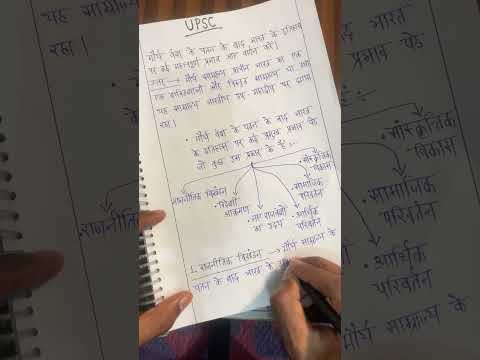 UPSC
मौर्य वंश के पतन के बाद भारत के इतिहास
पर कई महत्वपूर्ण प्रभाव का वर्णन करें।
उत्तर → मौर्य साम्राज्य प्राचीन भारत का एक
शक्तिशाली और विस्तृत साम्राज्य था
यह साम्राज्य भारतीय उप-महाद्वीप पर
रहा।
• मौर्य वंश के पतन के बाद भारत
के इतिहास पर कई प्रमुख प्रभाव पड़े
जो कुछ इस प्रकार के हैं :-
• राजनैतिक विखंडन
• विदेशी
आक्रमण
• नए राजवंशों
का उदय
• आर्थिक
परिवर्तन
• सामाजिक
परिवर्तन
• सांस्कृतिक
विकास
1. राजनैतिक विखंडन → मौर्य साम्राज्य के
पतन के बाद भारत के
यह साम्राज्य
रहा।
राजनैतिक
भारत
प्रभाव पड़े
• सांस्कृतिक
विकास
• सामाजिक
परिवर्तन
• आर्थिक
परिवर्तन
मौर्य साम्राज्य के